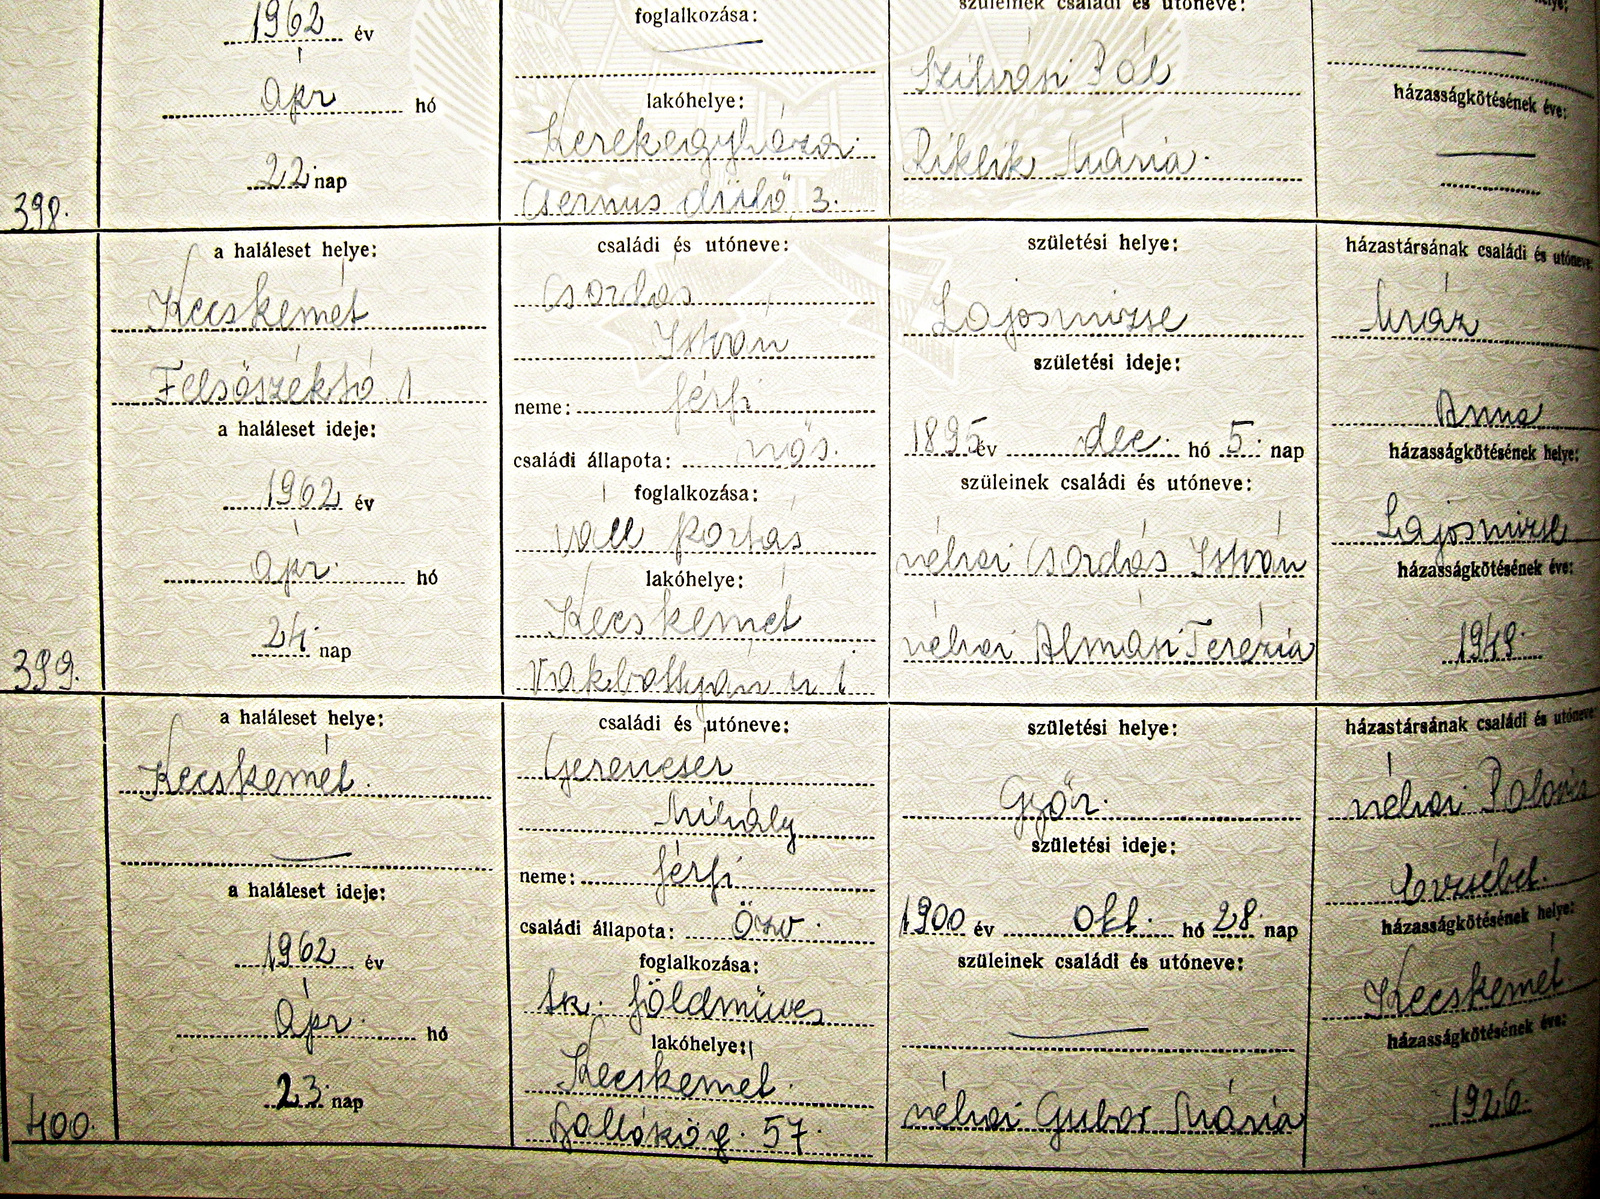 398.
1962 év
ápr hó
22 nap
foglalkozása:
lakóhelye:
Kerekegyháza
Csernus dűlő 3.
szüleinek családi és utóneve:
Szilvási Pál
Riklik Mária
házasságkötésének éve:
399.
a haláleset helye:
Kecskemét
Felsőszéktó 1
a haláleset ideje:
1962 év
ápr. hó
24. nap
családi és utóneve:
Csordás
István
neme: férfi
családi állapota: nős.
foglalkozása:
váll kortás
lakóhelye:
Kecskemét
Vakbottyán u 1
születési helye:
Lajosmizse
születési ideje:
1895 év dec. hó 5. nap
szüleinek családi és utóneve:
néhai Csordás István
néhai Almási Terézia
házastársának családi és utóneve:
Mráz
Anna
házasságkötésének helye:
Lajosmizse
házasságkötésének éve:
1949.
400.
a haláleset helye:
Kecskemét.
a haláleset ideje:
1962 év
ápr. hó
23. nap
családi és utóneve:
Gerencsér
Mihály
neme: férfi
családi állapota: Özv.
foglalkozása:
tsz. földműves
lakóhelye:
Kecskemét.
57.
születési helye:
Győr.
születési ideje:
1900 év okt. hó 28. nap
szüleinek családi és utóneve:
néhai Gubor Mária
házastársának családi és utóneve:
néhai Palovics
Erzsébet.
házasságkötésének helye:
Kecskemét.
házasságkötésének éve:
1926.